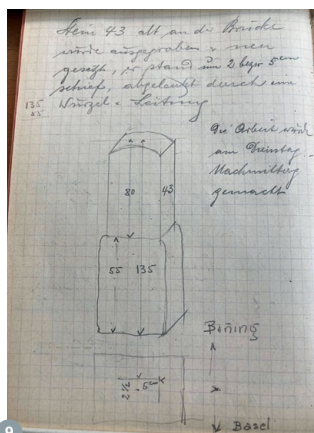 Stein 43 alt an der Brücke
wurde ausgegraben & neu
gesetzt, er stand um 2 bezw 5 cm
schief, abgelenkt durch eine
135
Wurzel & Leitung
Die Arbeit wurde
am Dienstag
Nachmittag
gemacht
80
45
55
135
Bining
5 cm
Basel
9